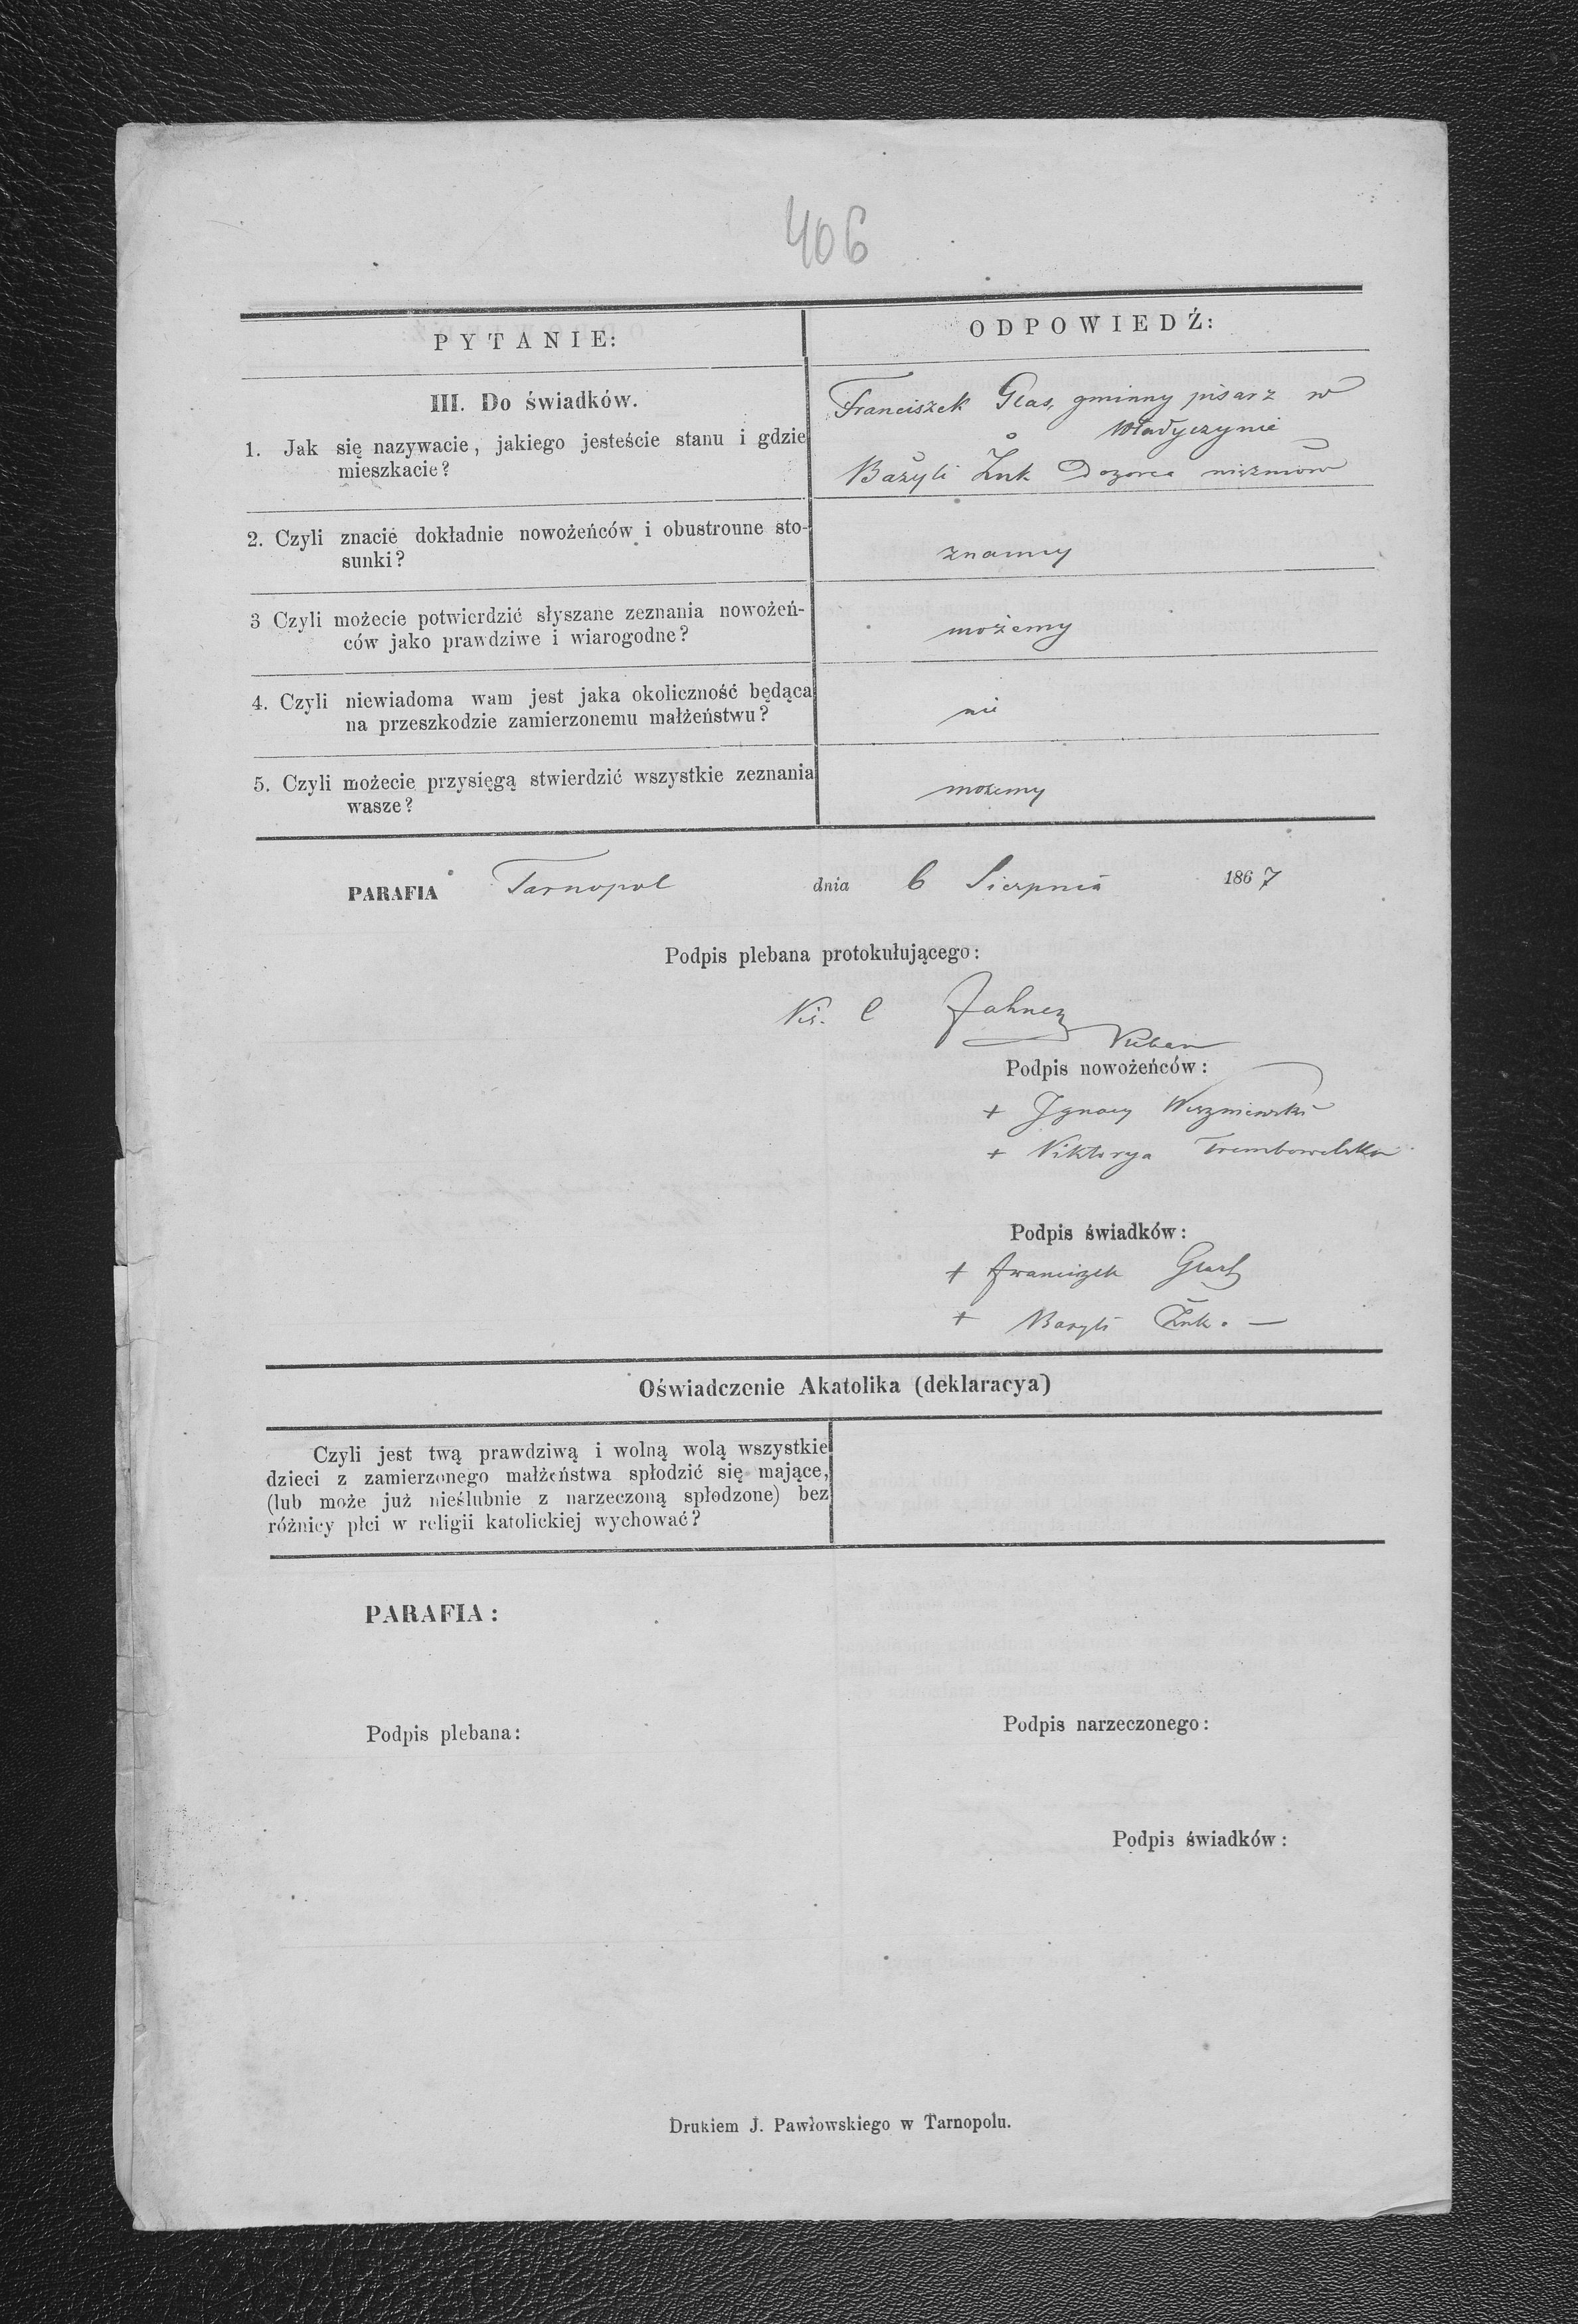 406
PYTANIE:
ODPOWIEDŹ:
III. Do świadków.
1. Jak się nazywacie, jakiego jesteście stanu i gdzie
mieszkacie?
Franciszek Glas, gminny pisarz w
Bazyli Żuk Dozorca
2. Czyli znacie dokładnie nowożeńców i obustronne sto-
sunki?
znamy
3 Czyli możecie potwierdzić słyszane zeznania nowożeń-
ców jako prawdziwe i wiarogodne?
możemy
4. Czyli niewiadoma wam jest jaka okoliczność będąca
na przeszkodzie zamierzonemu małżeństwu?
nie
5. Czyli możecie przysięgą stwierdzić wszystkie zeznania
wasze?
możemy
PARAFIA Tarnopol dnia 6 Sierpnia 1867
Podpis plebana protokułującego:
Podpis nowożeńców:
+ Ignacy Wiszniewski
+ Viktorya Trembowelska
Podpis świadków:
+ Franciszek
+ Bazyli Żuk. —
Oświadczenie Akatolika (deklaracya)
Czyli jest twą prawdziwą i wolną wolą wszystkie
dzieci z zamierzonego małżeństwa spłodzić się mające,
(lub może już nieślubnie z narzeczoną spłodzone) bez
różnicy płci w religii katolickiej wychować?
PARAFIA:
Podpis plebana:
Podpis narzeczonego:
Podpis świadków:
Drukiem J. Pawłowskiego w Tarnopolu.